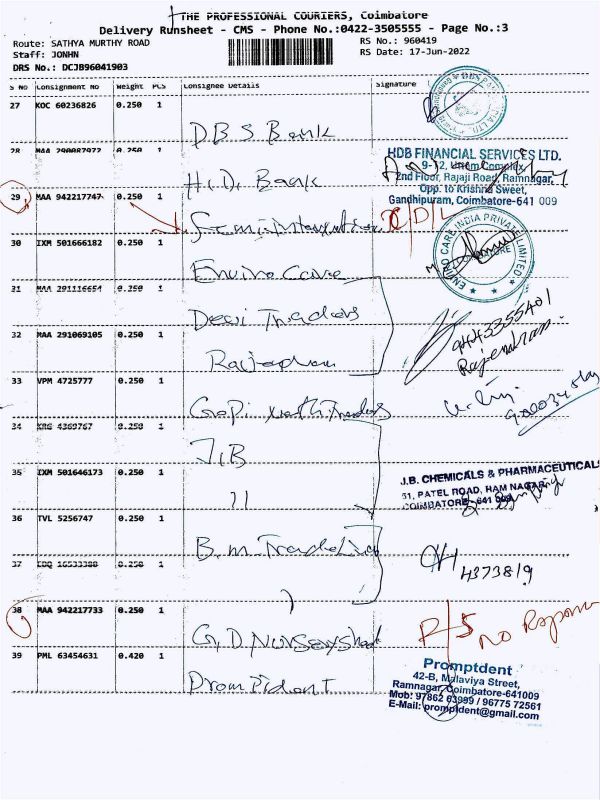 THE PROFESSIONAL COURIERS, Coimbatore
Delivery Runsheet - CMS - Phone No.:0422-3505555 - Page No.:3
Route: SATHYA MURTHY ROAD
RS No.: 960419
Staff: JONHN
RS Date: 17-Jun-2022
DRS No.: DCJB96041903
S No Consignment No Weight PCS Consignee Details Signature
27 KOC 60236826 0.250 1
DBS Bank
28 MAA 290087977 0.250 1
HDB FINANCIAL SERVICES LTD.
2nd Floor, Rajaji Road, Ramnagar,
Opp. to Krishna Sweet,
Gandhipuram, Coimbatore-641 009
H.D. Bank
29 MAA 942217747 0.250 1
30 IXM 501666182 0.250 1
ENVIRO CARE INDIA PRIVATE LIMITED
Enviro Care
31 MAA 291116654 0.250 1
Devi Traders
32 MAA 291069105 0.250 1
9443355401
Rajendran
33 VPM 4725777 0.250 1
34 KRG 4369767 0.250 1
J.B
35 IXM 501646173 0.250 1
J.B. CHEMICALS & PHARMACEUTICALS
51, PATEL ROAD, RAM NAGAR,
COIMBATORE-641 009
11
36 TVL 5256747 0.250 1
B.M. Tradelink
37 EDQ 16533388 0.250 1
4373819
38 MAA 942217733 0.250 1
G.D. Nursery
R/S NO Response
39 PML 63454631 0.420 1
Prompident
Promptdent
42-B, Malaviya Street,
Ramnagar, Coimbatore-641009
Mob: 97862 63999 / 96775 72561
E-Mail: promptdent@gmail.com